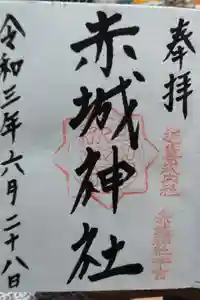 奉拝
赤城神社
令和三年六月二十八日